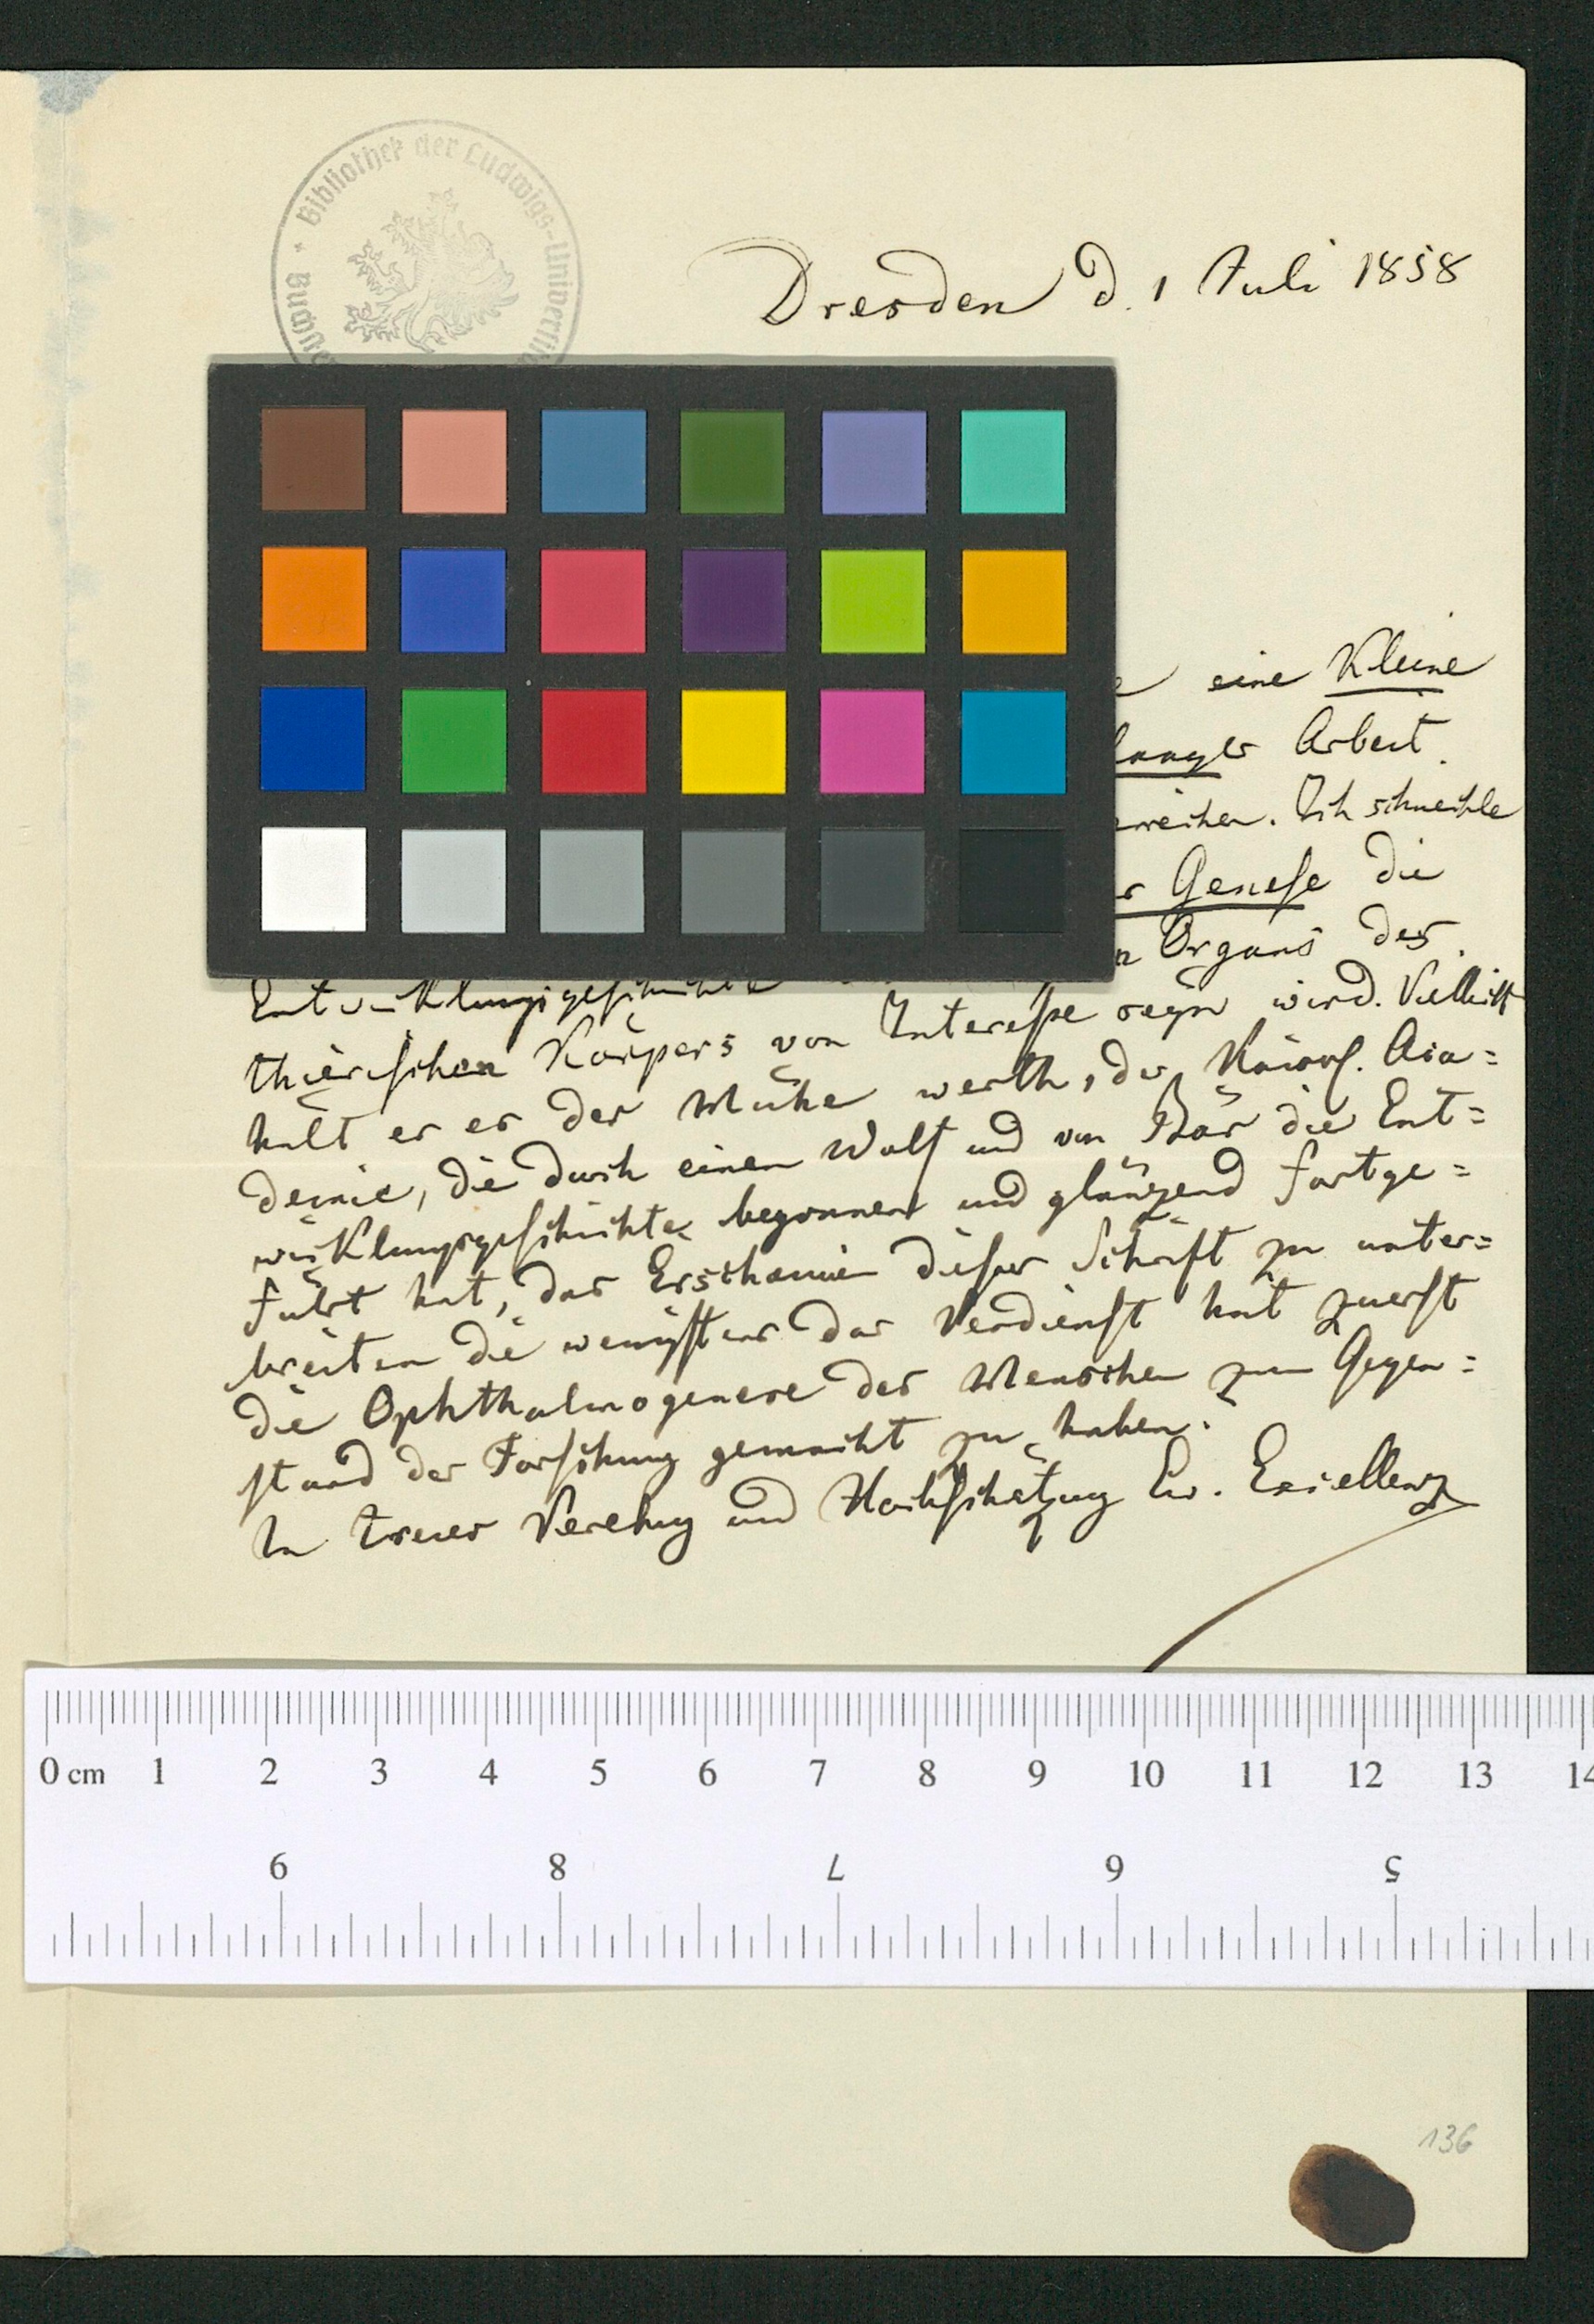 Bibliothek der Ludwigs-Universität
Dresden d. 1 Juli 1858
eine Kleine
langer Arbeit.
Ich schmeichle
Genese die
Organs des
Entwicklungsgeschichte
thierischen Körpers von Interesse seyn wird. Vielleicht
hält es es der Mühe werth, der Kaiserl. Aca=
demie, die durch einen Wolf und von Bär die Ent=
wicklungsgeschichte begonnen und glänzend fortge=
fürt hat, das Erscheinen dieser Schrift zu unter=
breiten die wenigstens das Verdienst hat zuerst
die Ophthalmogenese des Menschen zum Gegen=
stand der Forschung gemacht zu haben.
In treuer Verehrung und Hochschätzung Ew. Excellenz
0 cm 1 2 3 4 5 6 7 8 9 10 11 12 13 14
9 8 7 6 5
136